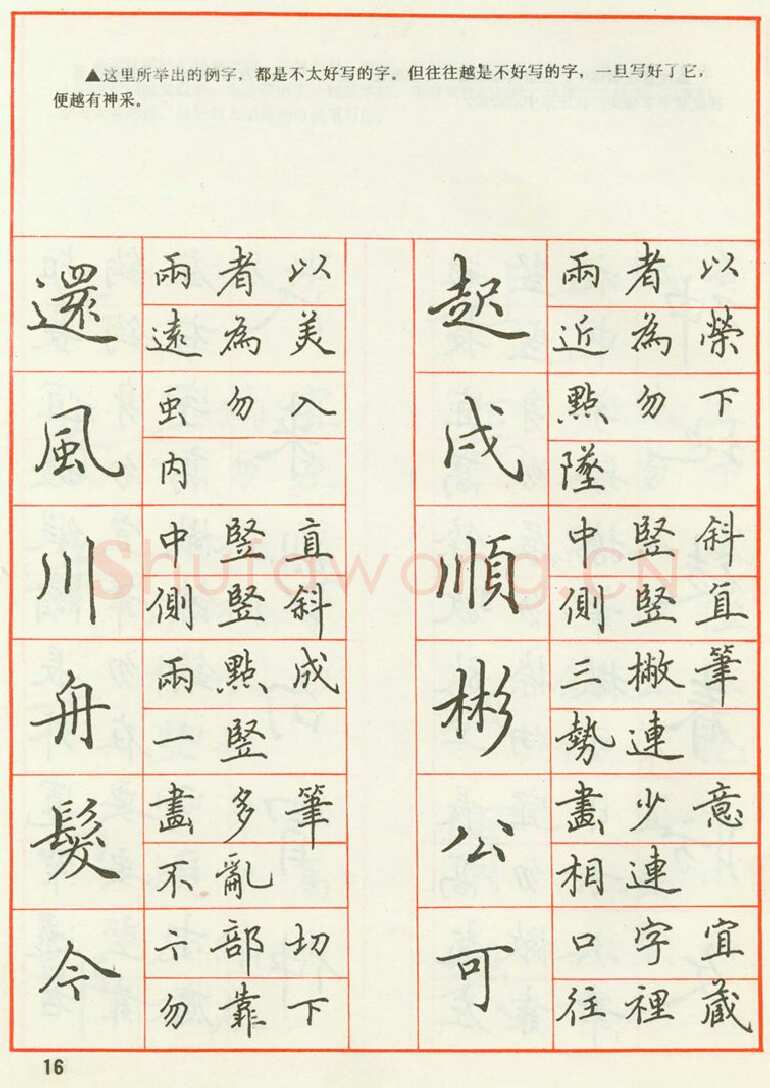 ▲这里所举出的例字，都是不太好写的字。但往往越是不好写的字，一旦写好了它，
便越有神采。
還
兩者以
遠為美
風
虫勿入
内
川
中竪直
側竪斜
舟
兩點成
一竪
髮
畫多筆
不亂
今
部切
勿靠下
起
兩者以
近為榮
戍
點勿下
墜
順
中竪斜
側竪直
彬
三撇筆
勢連
公
畫少意
相連
可
口字宜
往裡藏
Shufawang.CN
16